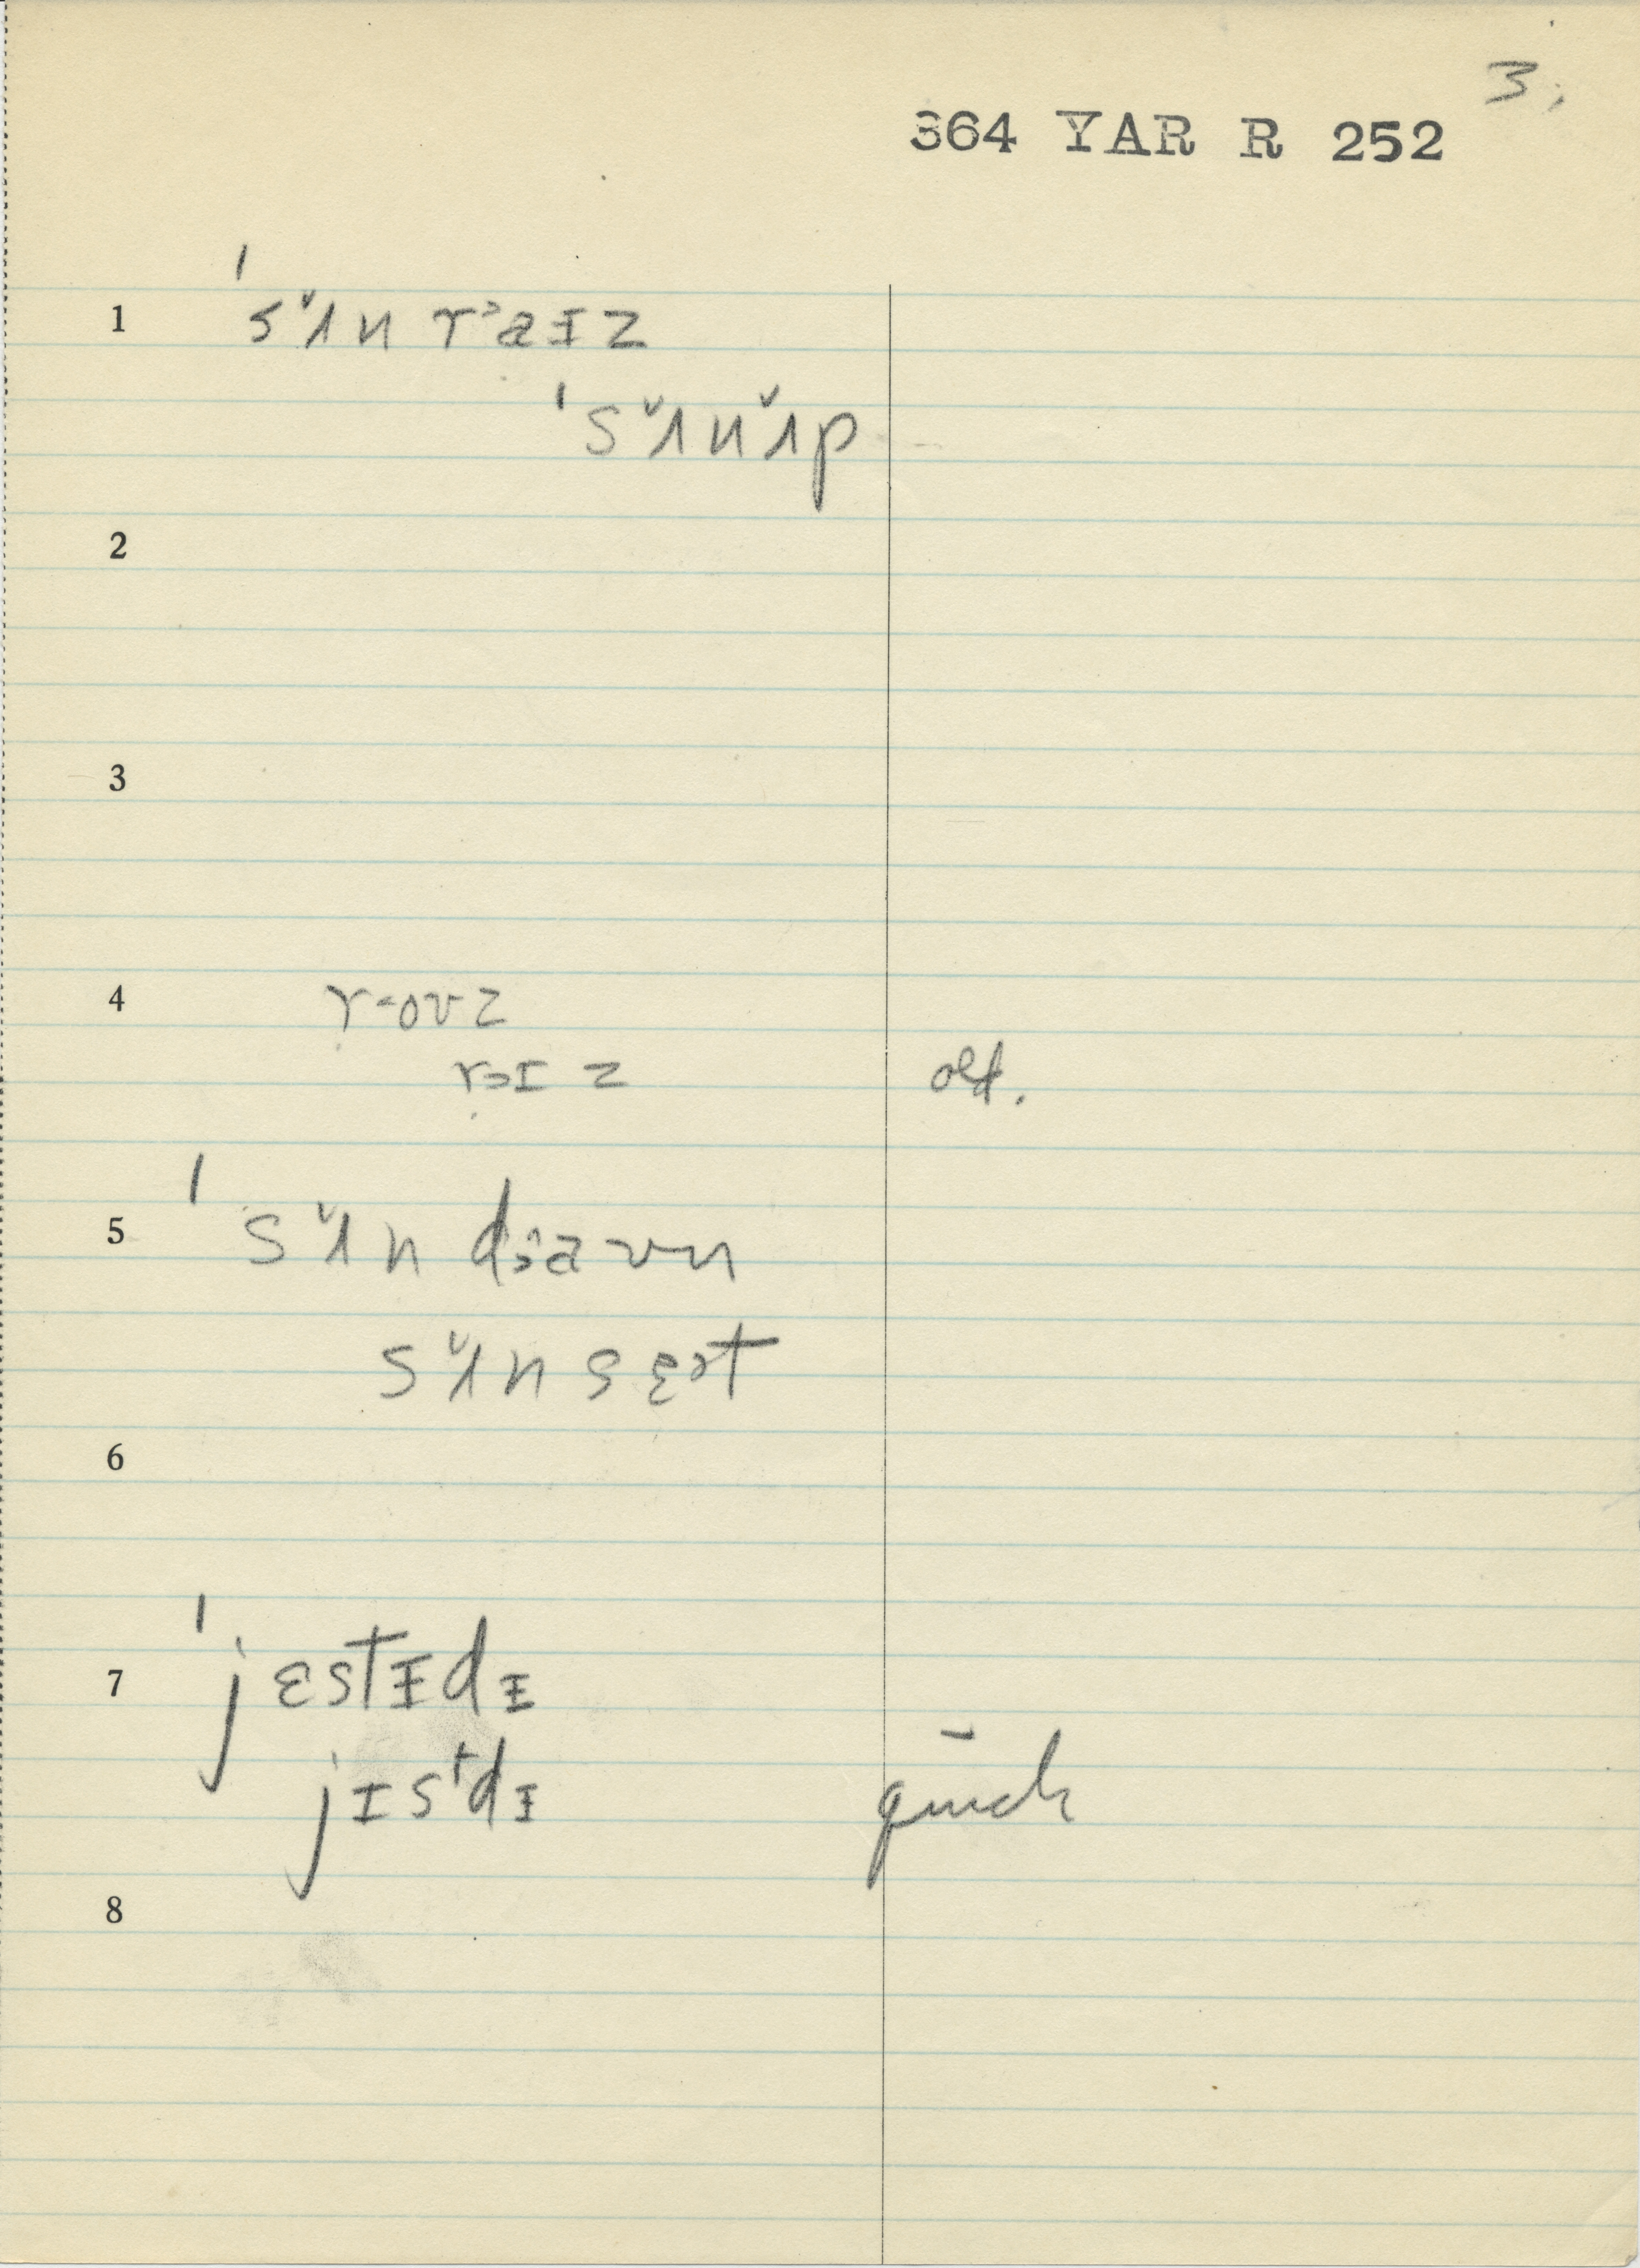 3.
364 YAR R 252
1 'sʌ̌n rᵓaɪz
'sʌ̌nʌ̌p
2
3
4 r-oʊz
rɔɪz old.
5 'sʌ̌n dɔaʊn
sʌ̌nsɛɚt
6
7 'jɛstɪdɪ
jɪsᵗdɪ quick
8